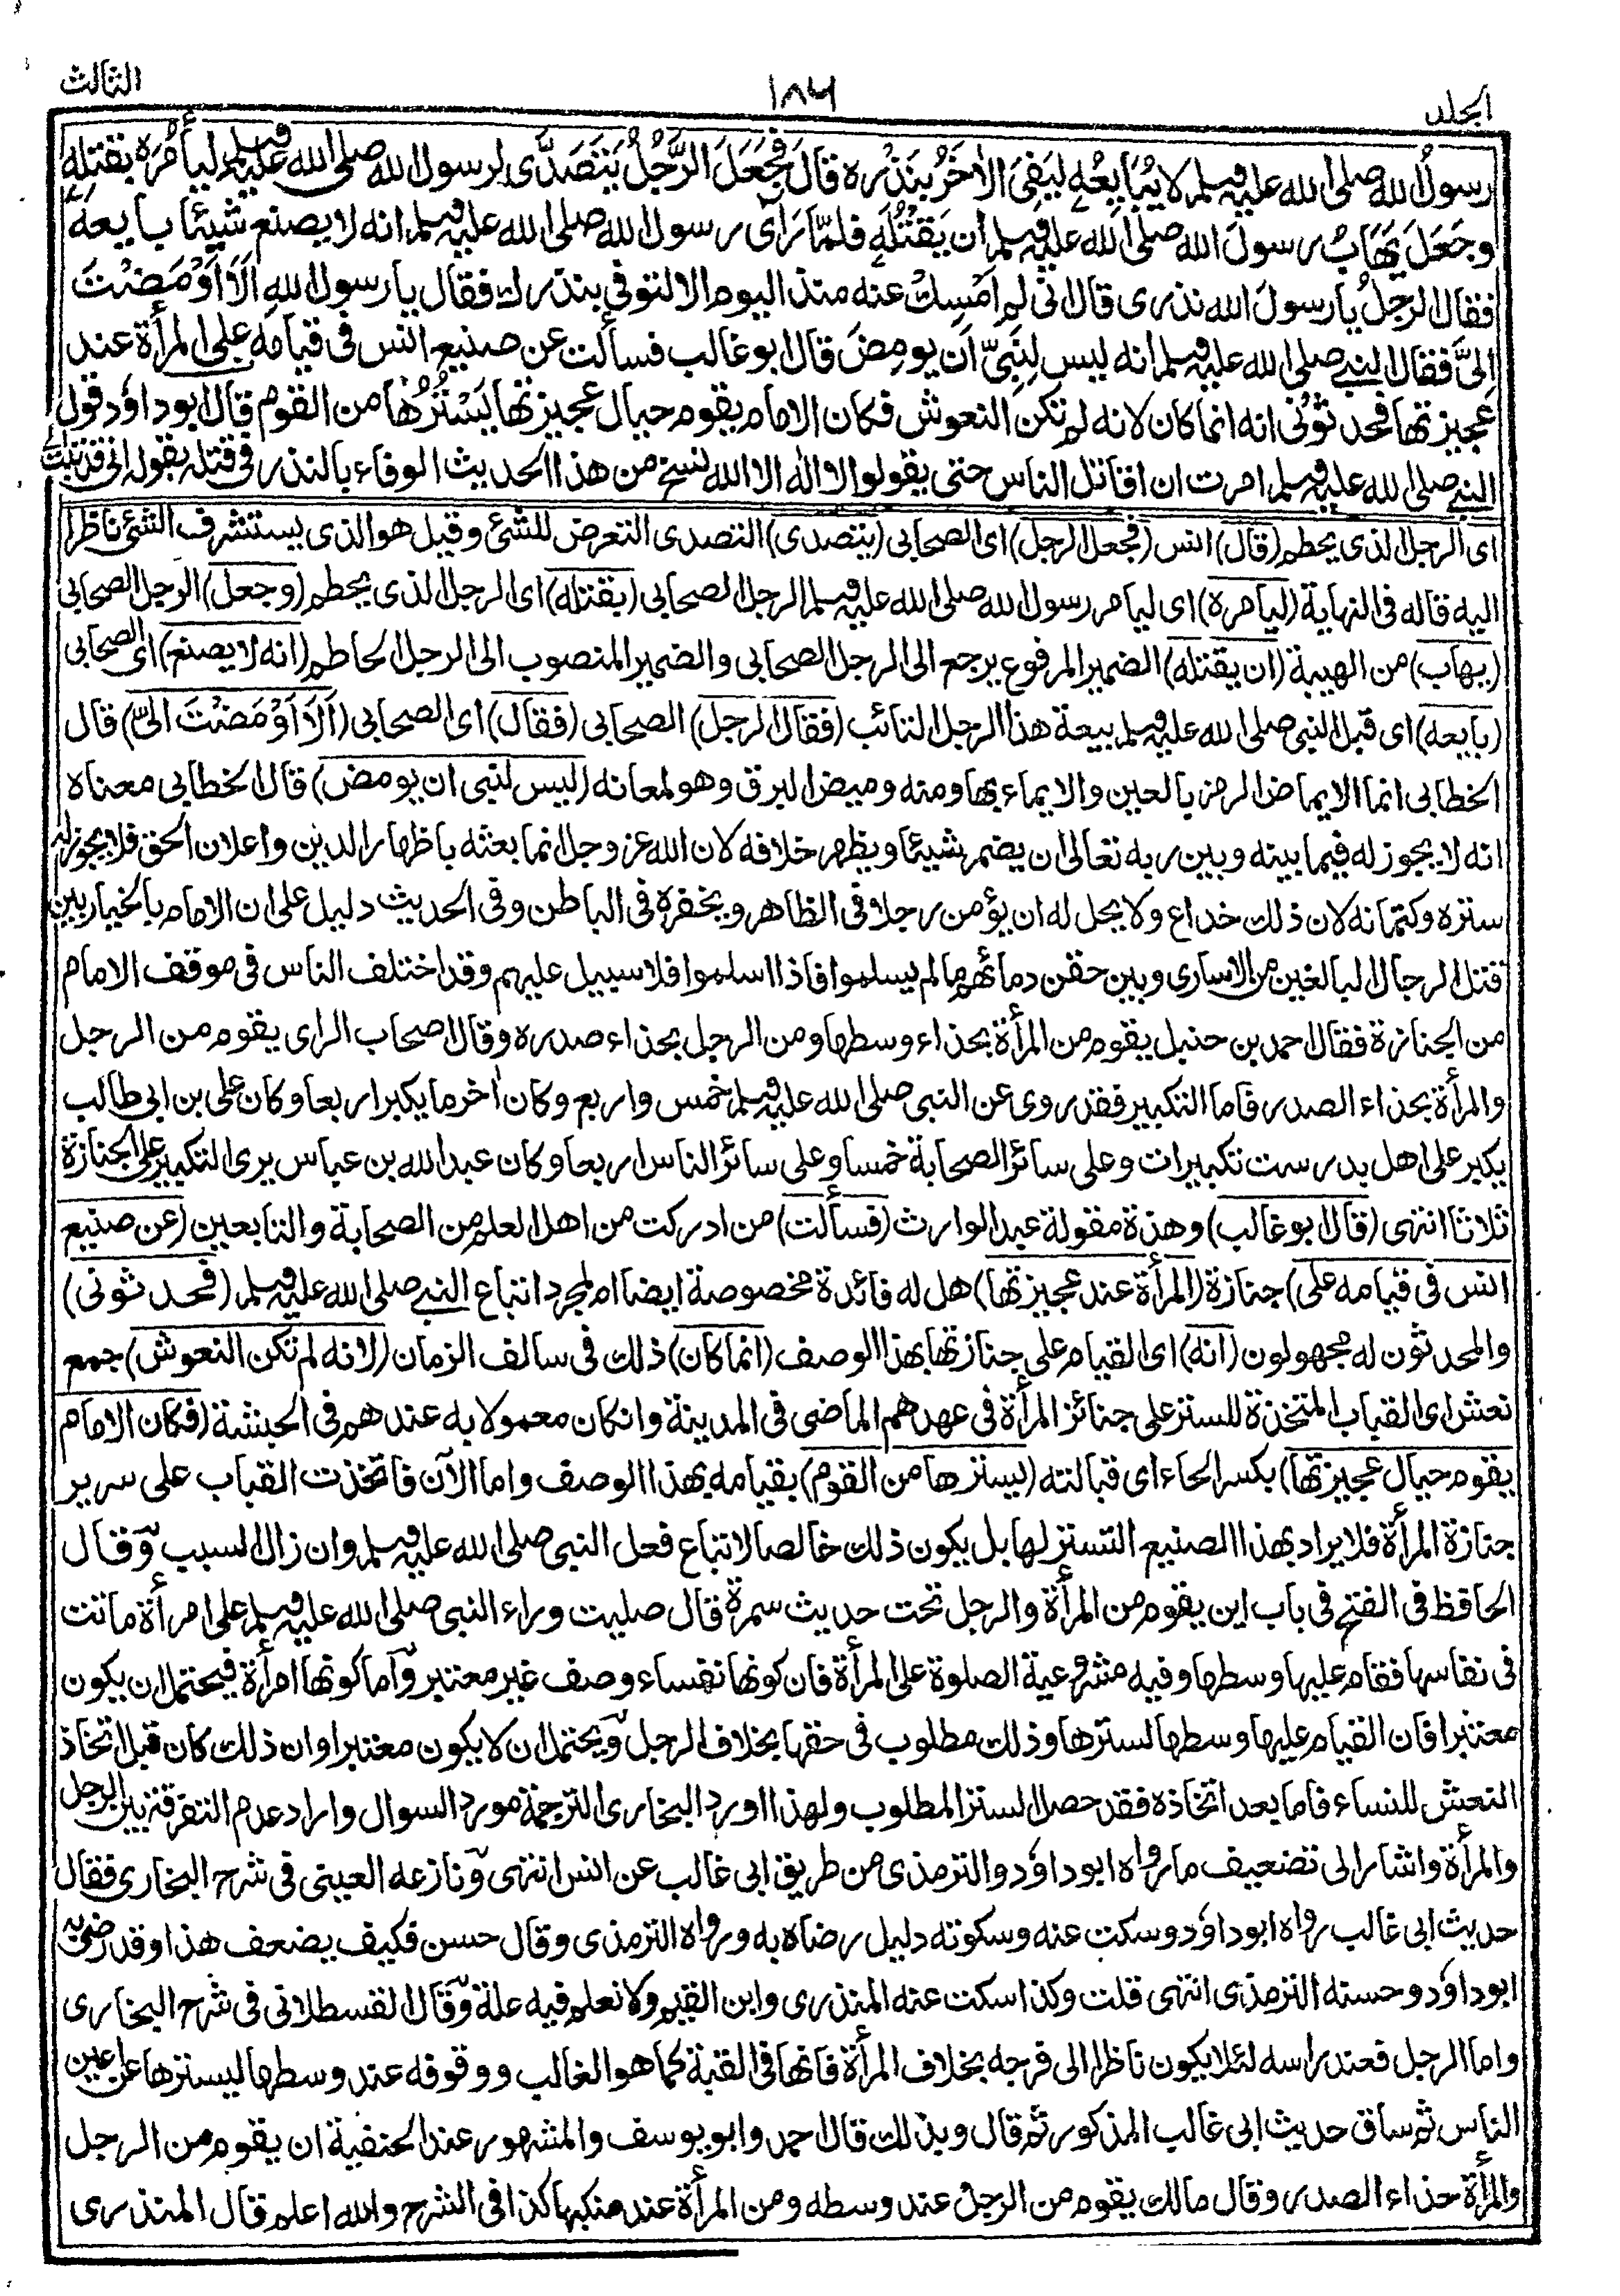 المجلد ١٨٦ الثالث
رسولُ الله صلى الله عليه وسلم لا يُبَايِعُه لِيَفِيَ الأخَرُ بِنَذْرِه قال فَجَعَلَ الرَّجُلُ يَتَصَدَّى لرسول الله صلى الله عليه وسلم ليأمُرَه بقتلِه
وجَعَلَ يَهَابُ رسولَ الله صلى الله عليه وسلم أن يَقْتُلَه فلمّا رَأى رسول الله صلى الله عليه وسلم انه لا يصنع شيئا بايعه
فقال الرجلُ يا رسولَ الله نذرى قال انى لم اَمْسِكْ عنه منذ اليوم الا لتوفي بنذرك فقال يا رسول الله اَلَا اَوْمَضْتَ
اِلىَّ فقال النبي صلى الله عليه وسلم انه ليس لِنَبِىّ اَن يومِضَ قال ابو غالب فسألت عن صنيع انس فى قيامه على المرأة عند
عجيزتها فحدثونى انه انما كان لانه لم تكن النعوش فكان الامام يقوم حيال عجيزتها يَسْتُرُها من القوم قال ابو داود قول
النبي صلى الله عليه وسلم امرت ان اقاتل الناس حتى يقولوا لا اله الا الله نسخ من هذا الحديث الوفاء بالنذر فى قتله بقوله انى قد تبت
اى الرجل الذى يحطم (قال) انس (فجعل الرجل) اى الصحابى (يتصدى) التصدى التعرض للشئ وقيل هو الذى يستشرف الشئ ناظرا
اليه قاله فى النهاية (ليامره) اى ليامر رسول الله صلى الله عليه وسلم الرجل الصحابى (بقتله) اى الرجل الذى يحطم (وجعل) الرجل الصحابى
(يهاب) من الهيبة (ان يقتله) الضمير المرفوع يرجع الى الرجل الصحابى والضمير المنصوب الى الرجل الحاطم (انه لا يصنع) اى الصحابى
(بايعه) اى قبل النبى صلى الله عليه وسلم بيعة هذا الرجل التائب (فقال الرجل) الصحابى (فقال) اى الصحابى (اَلَا اَوْمَضْتَ الىّ) قال
الخطابى انما الايماض الرمز بالعين والايماء بها ومنه وميض البرق وهو لمعانه (ليس لنبى ان يومض) قال الخطابى معناه
انه لا يجوز له فيما بينه وبين ربه تعالى ان يضمر شيئا ويظهر خلافه لان الله عز وجل انما بعثه باظهار الدين واعلان الحق فلا يجوز له
ستره وكتمانه لان ذلك خداع ولا يحل له ان يؤمن رجلا فى الظاهر ويخفره فى الباطن وفى الحديث دليل على ان الامام بالخيار بين
قتل الرجال البالغين من الاسارى وبين حقن دمائهم ما لم يسلموا فاذا اسلموا فلا سبيل عليهم وقد اختلف الناس فى موقف الامام
من الجنازة فقال احمد بن حنبل يقوم من المرأة بحذاء وسطها ومن الرجل بحذاء صدره وقال اصحاب الراى يقوم من الرجل
والمرأة بحذاء الصدر فاما التكبير فقد روى عن النبى صلى الله عليه وسلم خمس واربع وكان اٰخر ما يكبر اربعا وكان على بن ابى طالب
يكبر على اهل بدر ست تكبيرات وعلى سائر الصحابة خمسا وعلى سائر الناس اربعا وكان عبد الله بن عباس يرى التكبير على الجنازة
ثلاثا انتهى (قال ابو غالب) وهذه مقولة عبد الوارث (فسألت) من ادركت من اهل العلم من الصحابة والتابعين (عن صنيع
انس فى قيامه على) جنازة (المرأة عند عجيزتها) هل له فائدة مخصوصة ايضا ام لمجرد اتباع النبي صلى الله عليه وسلم (فحدثونى)
والمحدثون له مجهولون (انه) اى القيام على جنازتها بهذا الوصف (انما كان) ذلك فى سالف الزمان (لانه لم تكن النعوش) جمع
نعش اى القباب المتخذة للستر على جنائز المرأة فى عهدهم الماضى فى المدينة وان كان معمولا به عندهم فى الحبشة (فكان الامام
يقوم حيال عجيزتها) بكسر الحاء اى قبالته (يسترها من القوم) بقيامه بهذا الوصف واما الآن فاتخذت القباب على سرير
جنازة المرأة فلا يراد بهذا الصنيع التستر لها بل يكون ذلك خالصا لاتباع فعل النبى صلى الله عليه وسلم وان زال السبب وقال
الحافظ فى الفتح فى باب اين يقوم من المرأة والرجل تحت حديث سمرة قال صليت وراء النبى صلى الله عليه وسلم على امرأة ماتت
فى نفاسها فقام عليها وسطها وفيه مشروعية الصلوة على المرأة فان كونها نفساء وصف غير معتبر واما كونها امرأة فيحتمل ان يكون
معتبرا فان القيام عليها وسطها لسترها وذلك مطلوب فى حقها بخلاف الرجل ويحتمل ان لا يكون معتبرا وان ذلك كان قبل اتخاذ
النعش للنساء فاما بعد اتخاذه فقد حصل الستر المطلوب ولهذا اورد البخارى الترجمة مورد السوال واراد عدم التفرقة بين الرجل
والمرأة واشار الى تضعيف ما رواه ابو داود والترمذى من طريق ابى غالب عن انس انتهى ونازعه العينى فى شرح البخارى فقال
حديث ابى غالب رواه ابو داود وسكت عنه وسكوته دليل رضاه به ورواه الترمذى وقال حسن فكيف يضعف هذا وقد رضى به
ابو داود وحسنه الترمذى انتهى قلت وكذا سكت عنه المنذرى وابن القيم ولا نعلم فيه علة وقال القسطلانى فى شرح البخارى
واما الرجل فعند راسه لئلا يكون ناظرا الى فرجه بخلاف المرأة فانها فى القبة كما هو الغالب ووقوفه عند وسطها ليسترها عن اعين
الناس ثم ساق حديث ابى غالب المذكور ثم قال وبذلك قال احمد وابو يوسف والمشهور عند الحنفية ان يقوم من الرجل
والمرأة حذاء الصدر وقال مالك يقوم من الرجل عند وسطه ومن المرأة عند منكبها كذا فى الشرح والله اعلم قال المنذرى